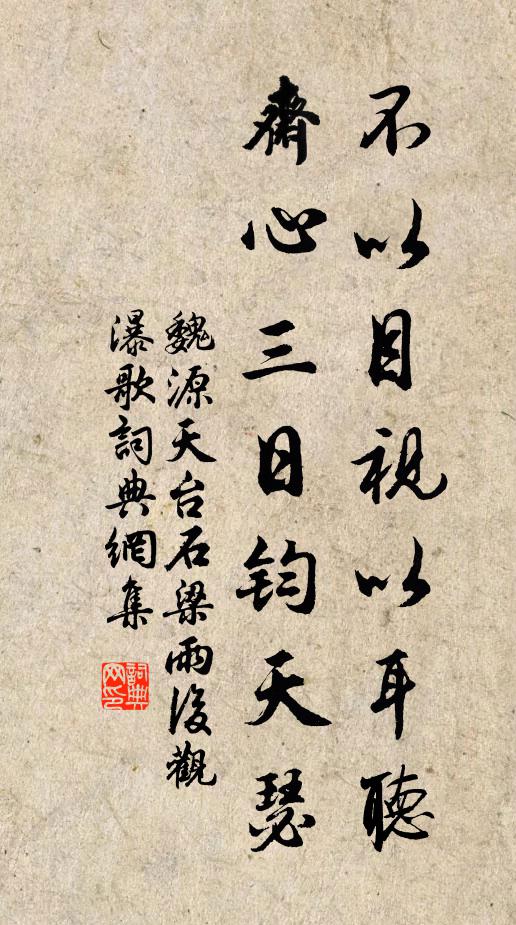 不以目視以耳聽
齋心三日鈞天瑟
魏源天台石梁雨後觀
瀑歌詞典網集
詞典
网印